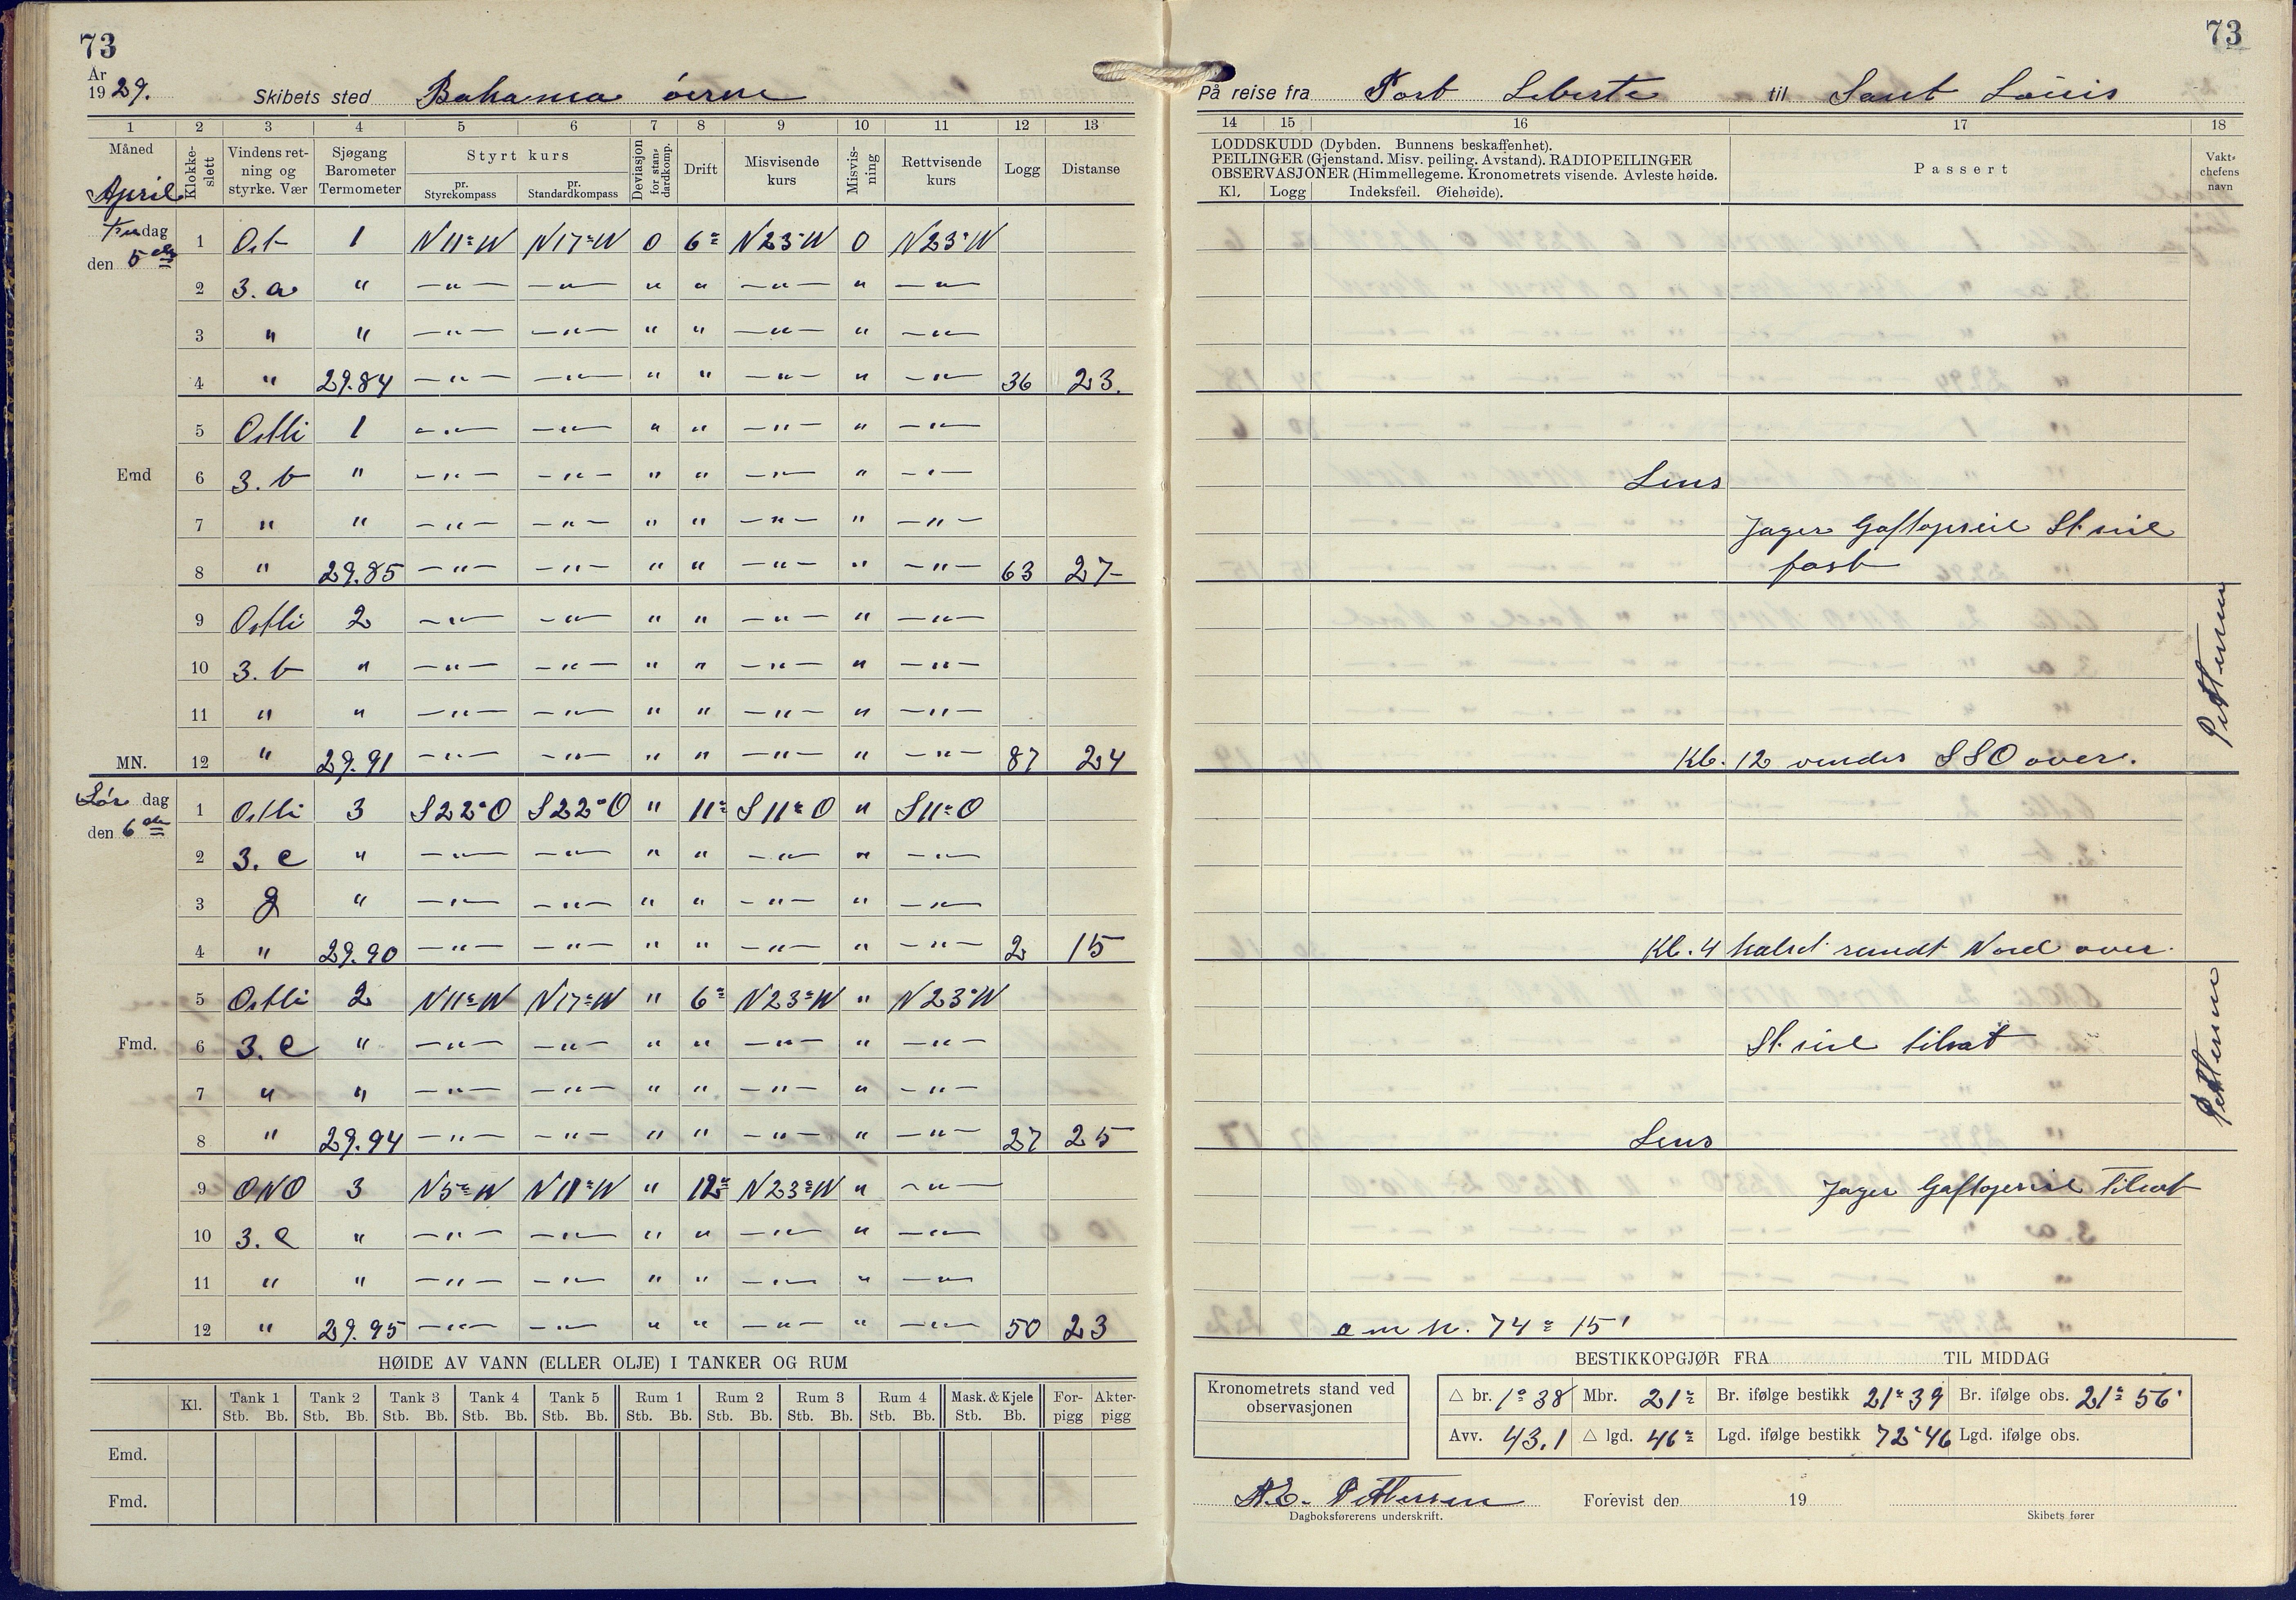 73
År 1929.
Skibets sted Bahama öerne
1 2 3 4 5 6 7 8 9 10 11 12 13
Måned April
Klokkeslett
Vindens retning og styrke. Vær
Sjøgang Barometer Termometer
Styrt kurs
pr. Styrekompass
pr. Standardkompass
Deviasjon for standardkomp.
Drift
Misvisende kurs
Misvisning
Rettvisende kurs
Logg
Distanse
dag den 5 de
1 Ost 1 N11°W N17°W 0 6° N23°W 0 N23°W
2 3. a " —"— —"— " " —"— " —"—
3 " " —"— —"— " " —"— " —"—
4 " 29.84 —"— —"— " " —"— " —"— 36 23.
5 Ostli 1 —"— —"— " " —"— " —"—
Emd 6 3. b " —"— —"— " " —"— " —"—
7 " " —"— —"— " " —"— " —"—
8 " 29.85 —"— —"— " " —"— " —"— 63 27-
9 Ostli 2 —"— —"— " " —"— " —"—
10 3. b " —"— —"— " " —"— " —"—
11 " " —"— —"— " " —"— " —"—
MN. 12 " 29.91 —"— —"— " " —"— " —"— 87 24
Lör dag den 6 de
1 Ostli 3 S22°O S22°O " 11° S11°O " S11°O
2 3. c " —"— —"— " " —"— " —"—
3 g " —"— —"— " " —"— " —"—
4 " 29.90 —"— —"— " " —"— " —"— 2 15
5 Ostli 2 N11°W N17°W " 6° N23°W " N23°W
Fmd. 6 3. c " —"— —"— " " —"— " —"—
7 " " —"— —"— " " —"— " —"—
8 " 29.94 —"— —"— " " —"— " —"— 27 25
9 ONO 3 N5°W N11°W " 12° N23°W " —"—
10 3. c " —"— —"— " " —"— " —"—
11 " " —"— —"— " " —"— " —"—
12 " 29.95 —"— —"— " " —"— " —"— 50 23
HØIDE AV VANN (ELLER OLJE) I TANKER OG RUM
Kl. Tank 1 Tank 2 Tank 3 Tank 4 Tank 5 Rum 1 Rum 2 Rum 3 Rum 4 Mask. & Kjele For-pigg Akter-pigg
Stb. Bb. Stb. Bb. Stb. Bb. Stb. Bb. Stb. Bb. Stb. Bb. Stb. Bb. Stb. Bb. Stb. Bb. Stb. Bb.
Emd.
Fmd.
73
På reise fra Port Liberte til Sant Louis
14 15 16 17 18
LODDSKUDD (Dybden. Bunnens beskaffenhet).
PEILINGER (Gjenstand. Misv. peiling. Avstand). RADIOPEILINGER
OBSERVASJONER (Himmellegeme. Kronometrets visende. Avleste høide.
Kl. Logg Indeksfeil. Øiehøide).
Passert
Vaktchefens navn
Lens
Jager Gaftopseil St. seil
fast
Kl. 12 vendes SSO over.
Pettersen
Kl. 4 halset rundt Nord over.
St. seil tilsat
Lens
Pettersen
Jager Gaftopseil tilsat
a m h. 74° 15'
BESTIKKOPGJØR FRA TIL MIDDAG
Kronometrets stand ved observasjonen
△ br. 1° 38 Mbr. 21° Br. ifølge bestikk 21° 39 Br. ifølge obs. 21° 56'
Avv. 43.1 △ lgd. 46° Lgd. ifølge bestikk 72° 46 Lgd. ifølge obs.
Pettersen
Dagboksførerens underskrift.
Forevist den 19
Skibets fører